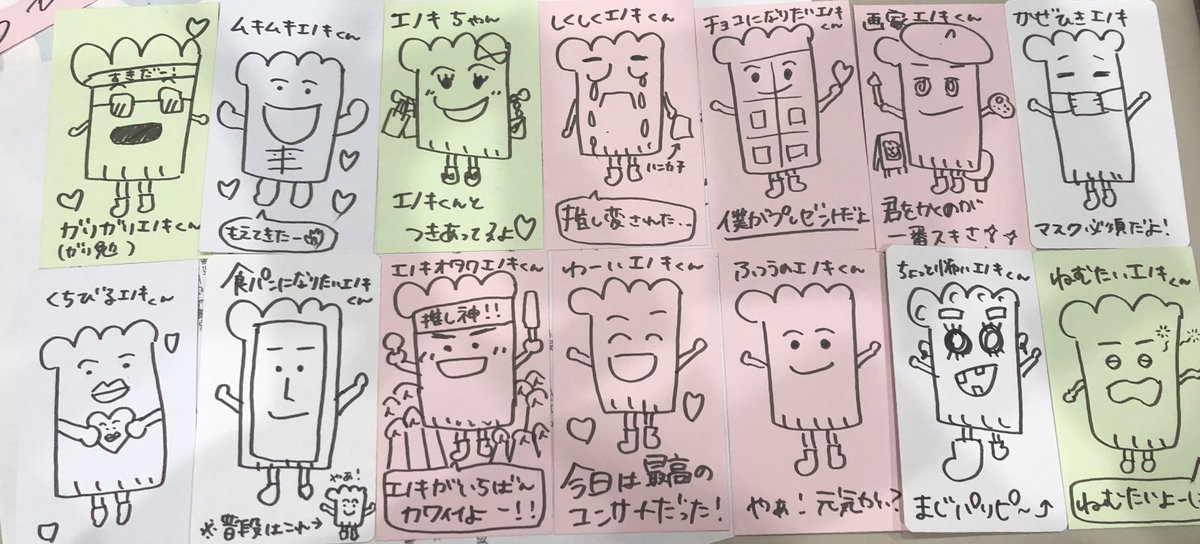 すきだー!
がりがりエノキくん
(がり勉)
ムキムキエノキくん
もえてきたー
エノキちゃん
エノキくんと
つきあってるよ♡
しくしくエノキくん
ハンカチ
推し変された...
チョコになりたいエノキくん
僕がプレゼントだよ
画家エノキくん
君をかくのが
一番スキさ☆☆
かぜひきエノキ
マスク必須だよ!
くちびるエノキくん
食パンになりたいエノキくん
やぁ!
※普段はこれ→
エノキオタクエノキくん
推し神!!
エノキがいちばん
カワイイよー!!
わーいエノキくん
今日は最高の
コンサートだった!
ふつうのエノキくん
やぁ!元気かい?
ちょっと怖いエノキくん
まじパリピ〜⤴
ねむたいエノキくん
ねむたいよー